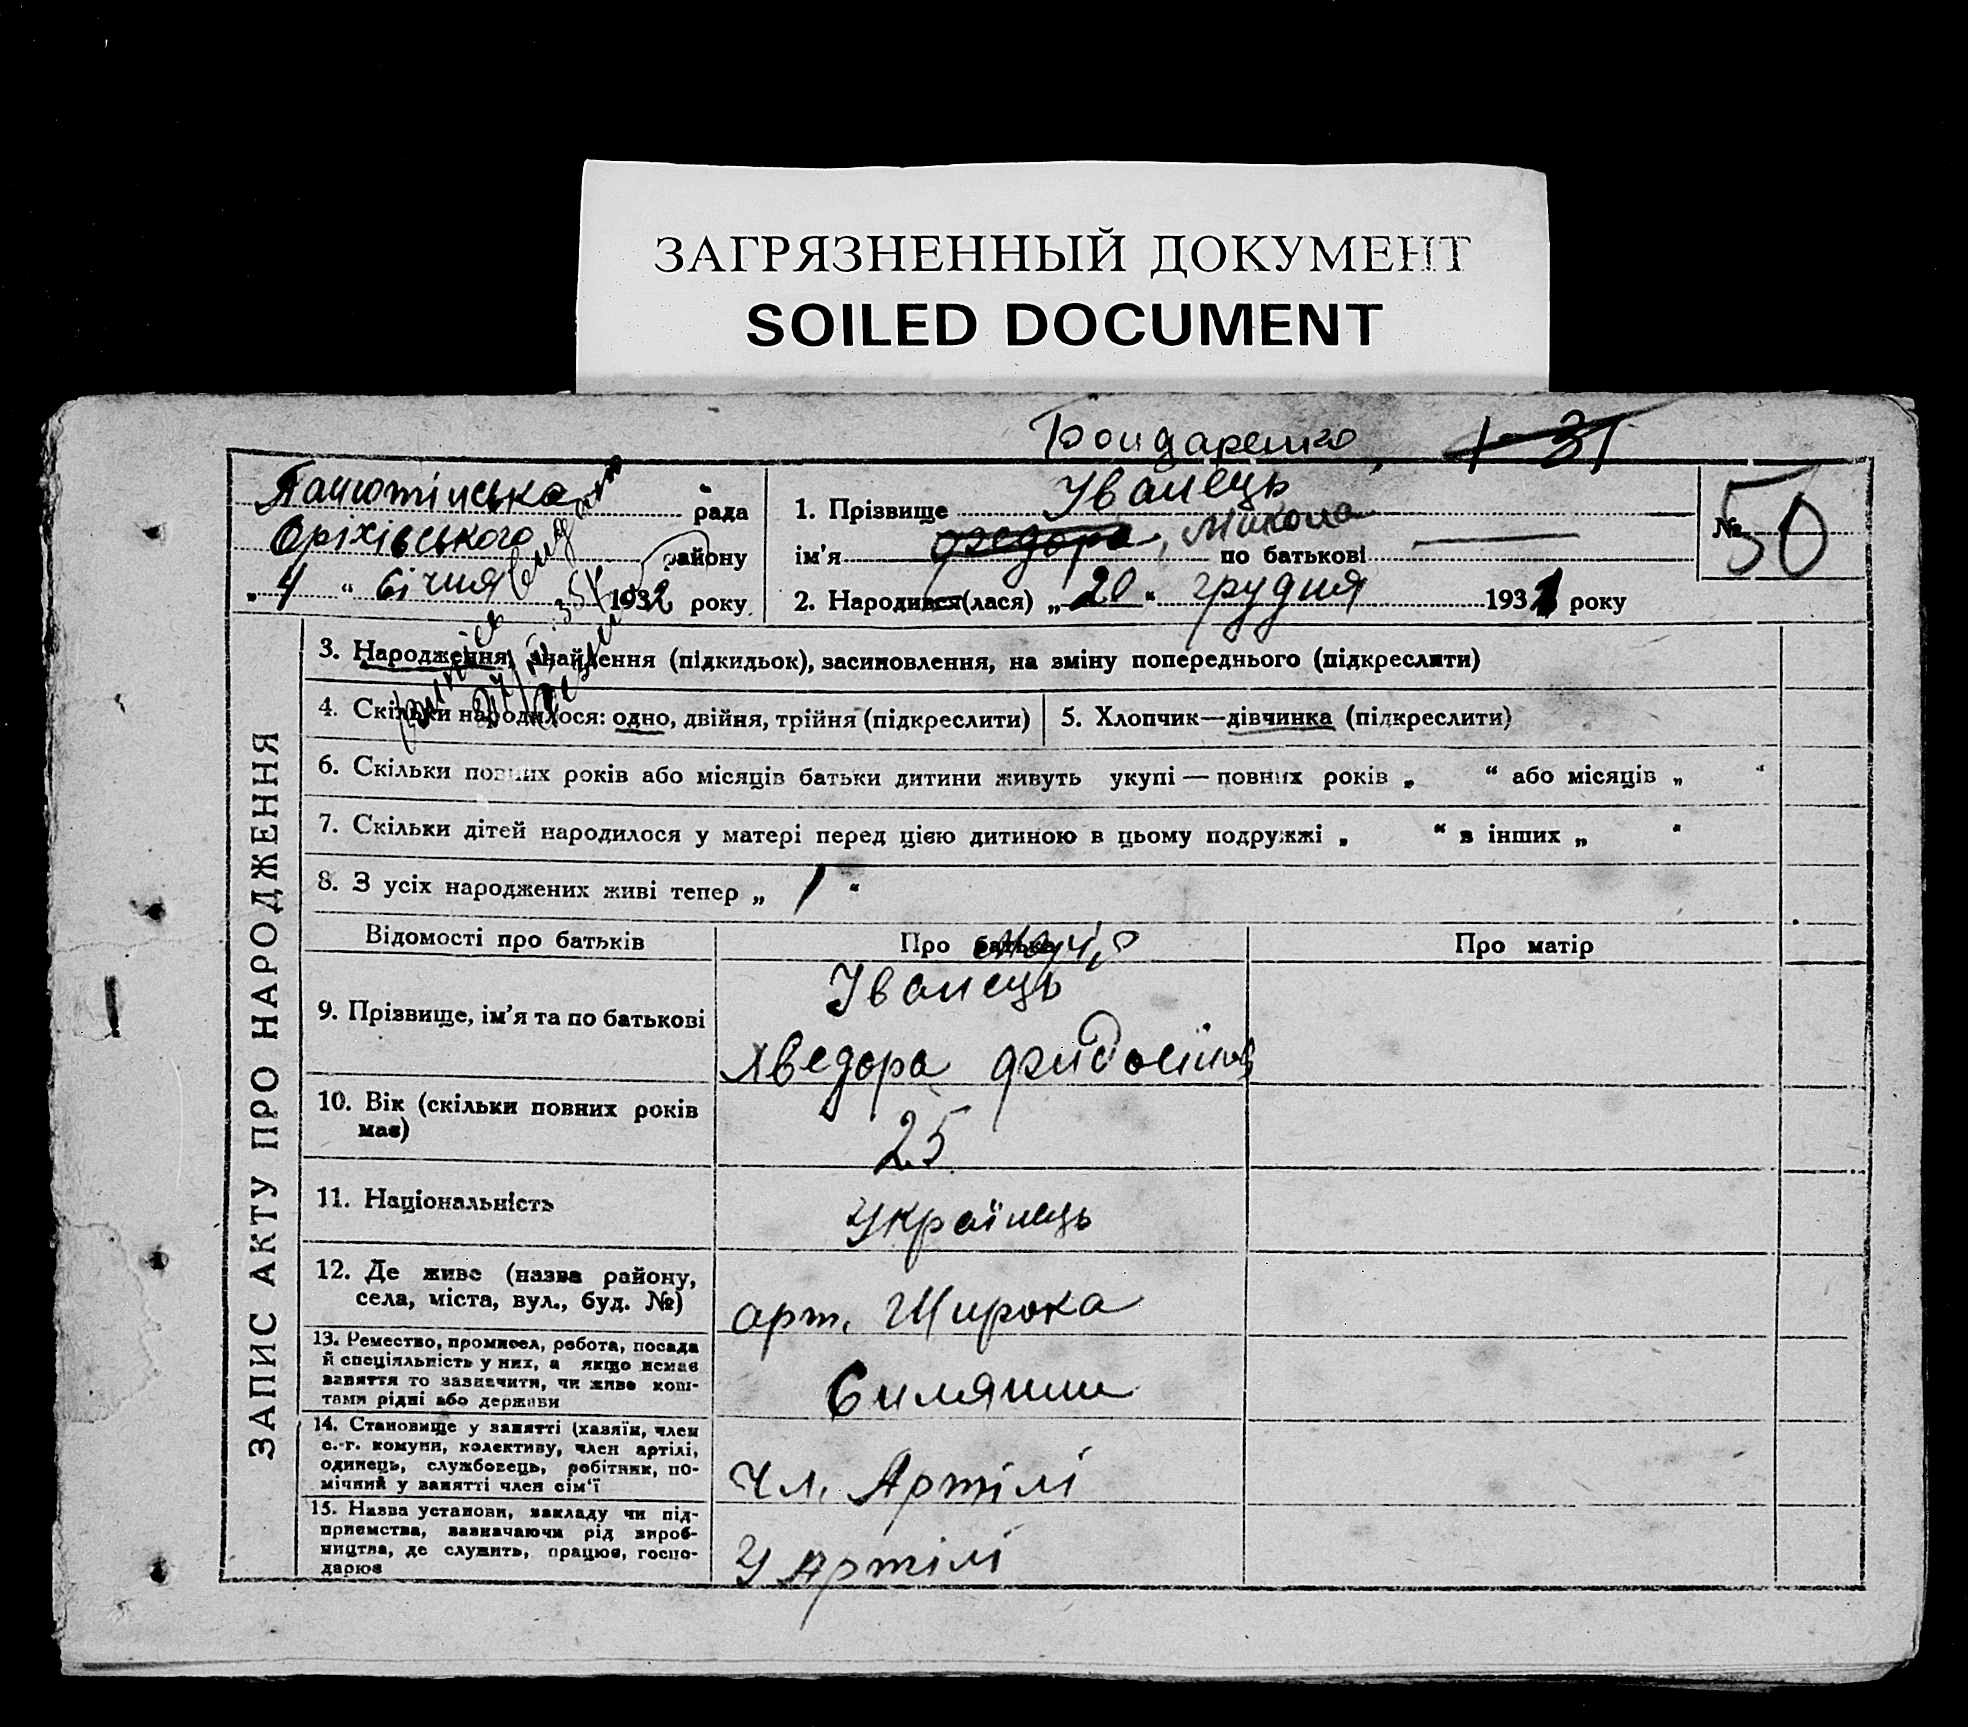 ЗАГРЯЗНЕННЫЙ ДОКУМЕНТ
SOILED DOCUMENT
Бондаренко, 1-31
рада
Оріхівського району
„ 4 “ січня 1932 року
1. Прізвище Іванець
ім'я Федора, Микола по батькові —
2. Народився(лася) „ 20 “ грудня 1931 року
№ 50
ЗАПИС АКТУ ПРО НАРОДЖЕННЯ
3. Народження, знайдення (підкидьок), засиновлення, на зміну попереднього (підкреслити)
4. Скільки народилося: одно, двійня, трійня (підкреслити)
5. Хлопчик—дівчинка (підкреслити)
6. Скільки повних років або місяців батьки дитини живуть укупі — повних років „ “ або місяців „ “
7. Скільки дітей народилося у матері перед цією дитиною в цьому подружжі „ “ в інших „ “
8. З усіх народжених живі тепер „ 1 “
Відомості про батьків
Про
Про матір
9. Прізвище, ім'я та по батькові
Іванець
Хведора
10. Вік (скільки повних років
має)
25
11. Національність
Українець
12. Де живе (назва району,
села, міста, вул., буд. №)
арт. Широка
13. Ремество, промисел, робота, посада
й спеціяльність у них, а якщо немає
заняття то зазначити, чи живе кош-
тами рідні або держави
14. Становище у занятті (хазяїн, член
с.-г. комуни, колективу, член артілі,
одинець, службовець, робітник, по-
мічний у занятті член сім'ї
Чл. Артілі
15. Назва установи, закладу чи під-
приємства, зазначаючи рід вироб-
ництва, де служить, працює, госпо-
дарює
У Артілі